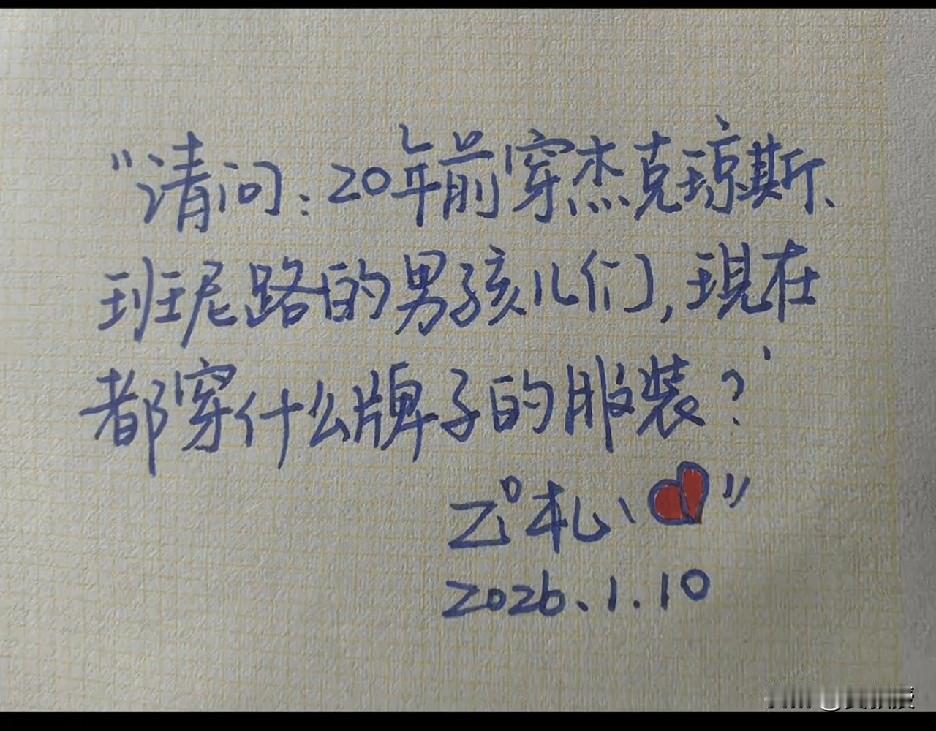 "请问:20年前穿杰克琼斯、
班尼路的男孩儿们,现在
都穿什么牌子的服装?
札、"
2026.1.10